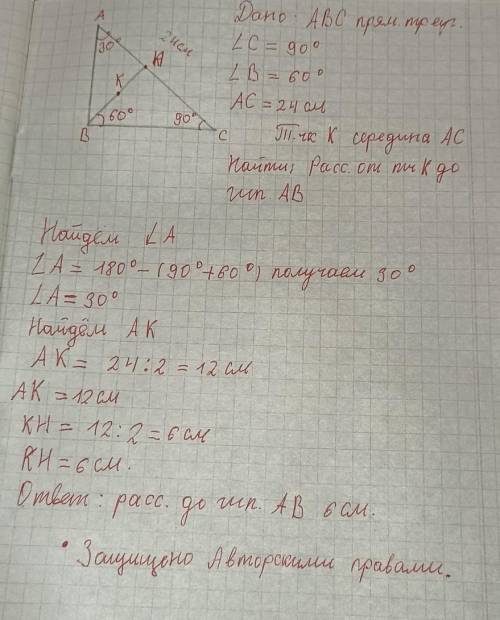 Дано: ABC прям. треуг.
∠C = 90°
∠B = 60°
AC = 24 см
Т.чк K середина AC
Найти; Расс. от тчк K до
гип AB
A
30
24 см
H
K
B
60°
90°
C
Найдём ∠A
∠A = 180° - (90° + 60°) получаем 30°
∠A = 30°
Найдём AK
AK = 24 : 2 = 12 см
AK = 12 см
KH = 12 : 2 = 6 см
KH = 6 см.
Ответ: расс. до гип. AB 6 см.
• Защищено Авторскими правами.